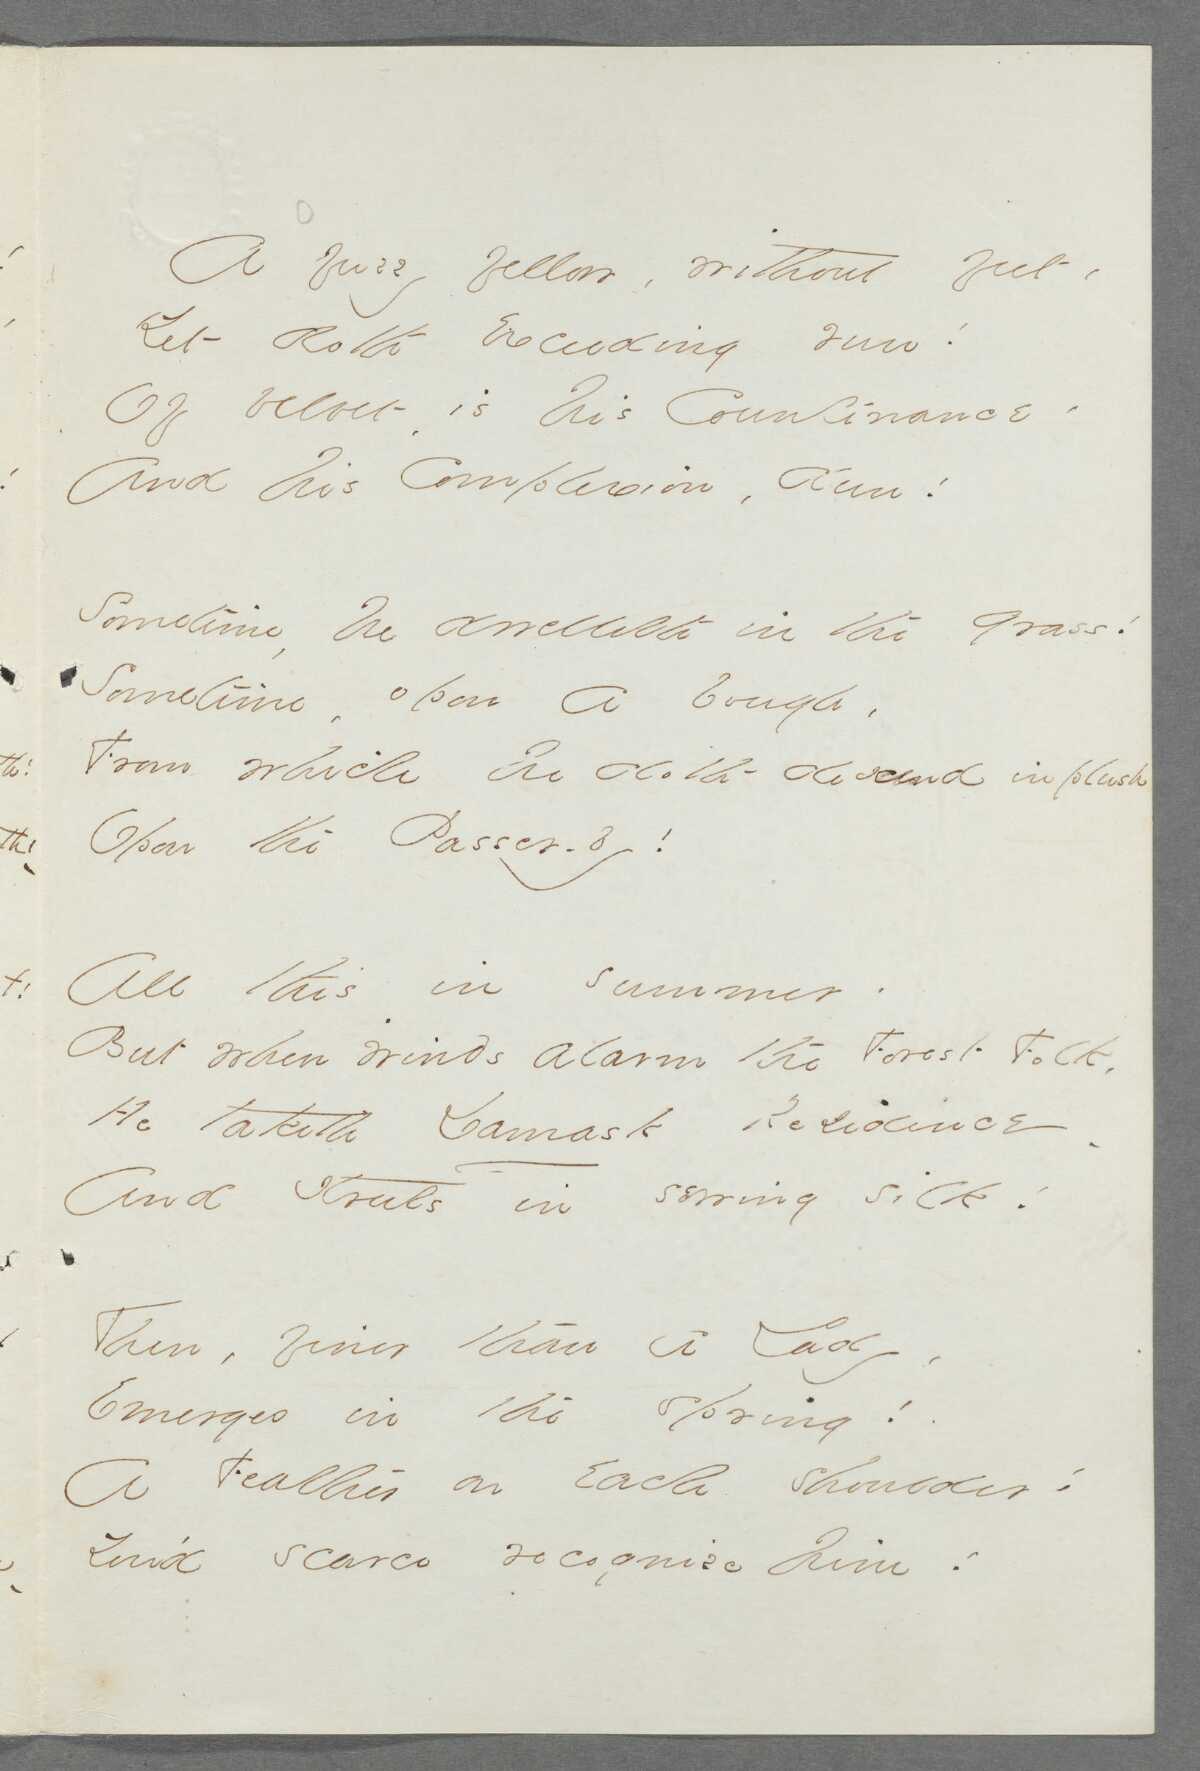 A fuzzy fellow, without feet,
Yet doth exceeding run!
Of velvet, is his Countenance,
And his Complexion, dun!
Sometime, he dwelleth in the grass!
Sometime, upon a bough,
From which he doth descend in plush
Upon the Passer-by!
All this in summer.
But when winds alarm the Forest Folk,
He taketh Damask Residence
And struts in sewing silk!
Then, finer than a Lady,
Emerges in the spring!
A Feather on each shoulder!
You'd scarce recognize him!